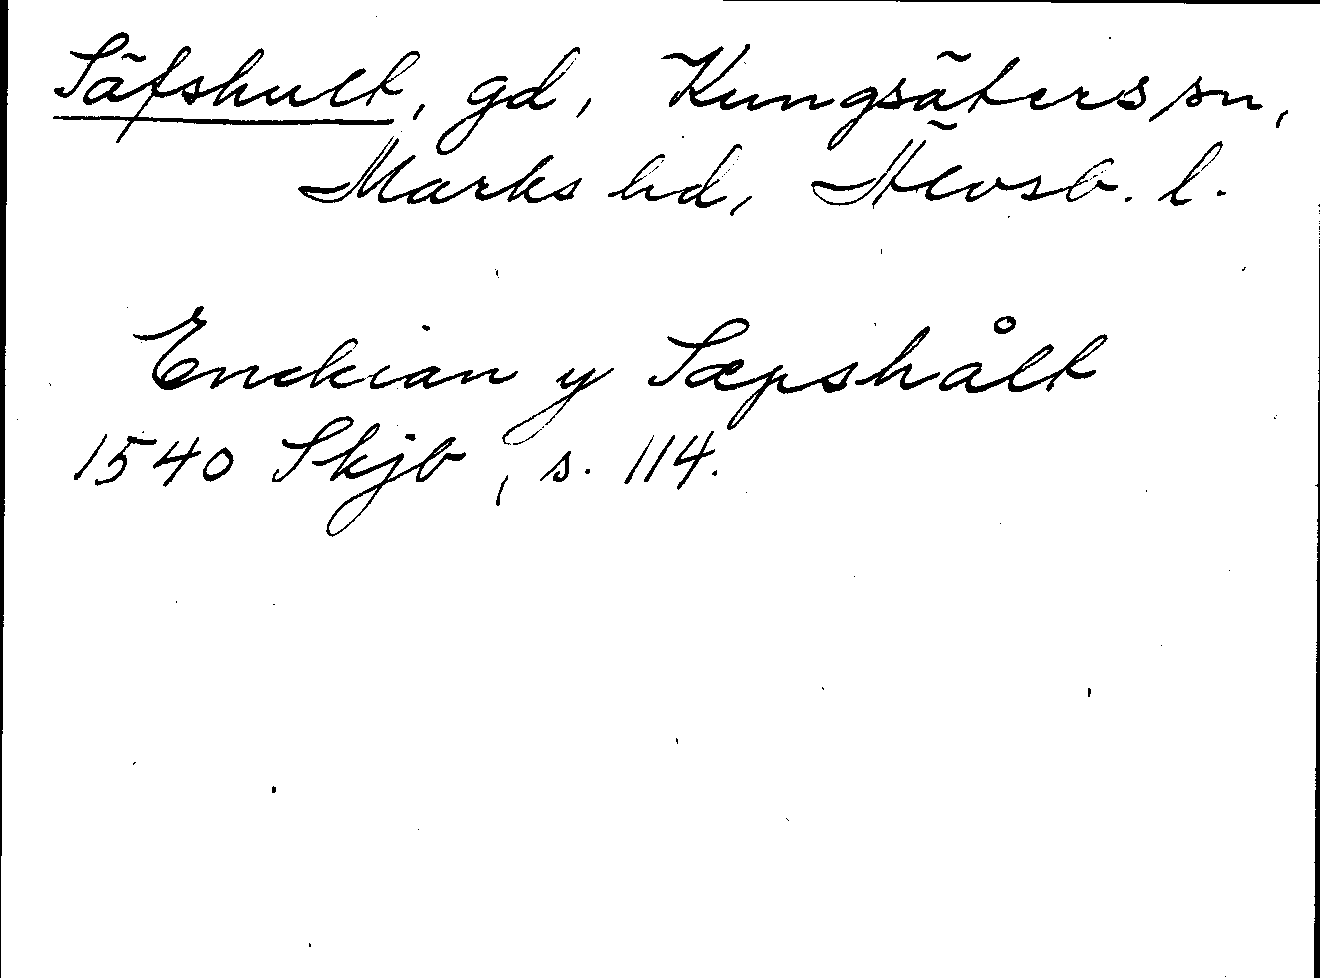 Säfshult, gd, Kungsäters sn,
Marks hd, Älvsb. l.
Enckian y Sæpshålt
1540 Skjb, s. 114.